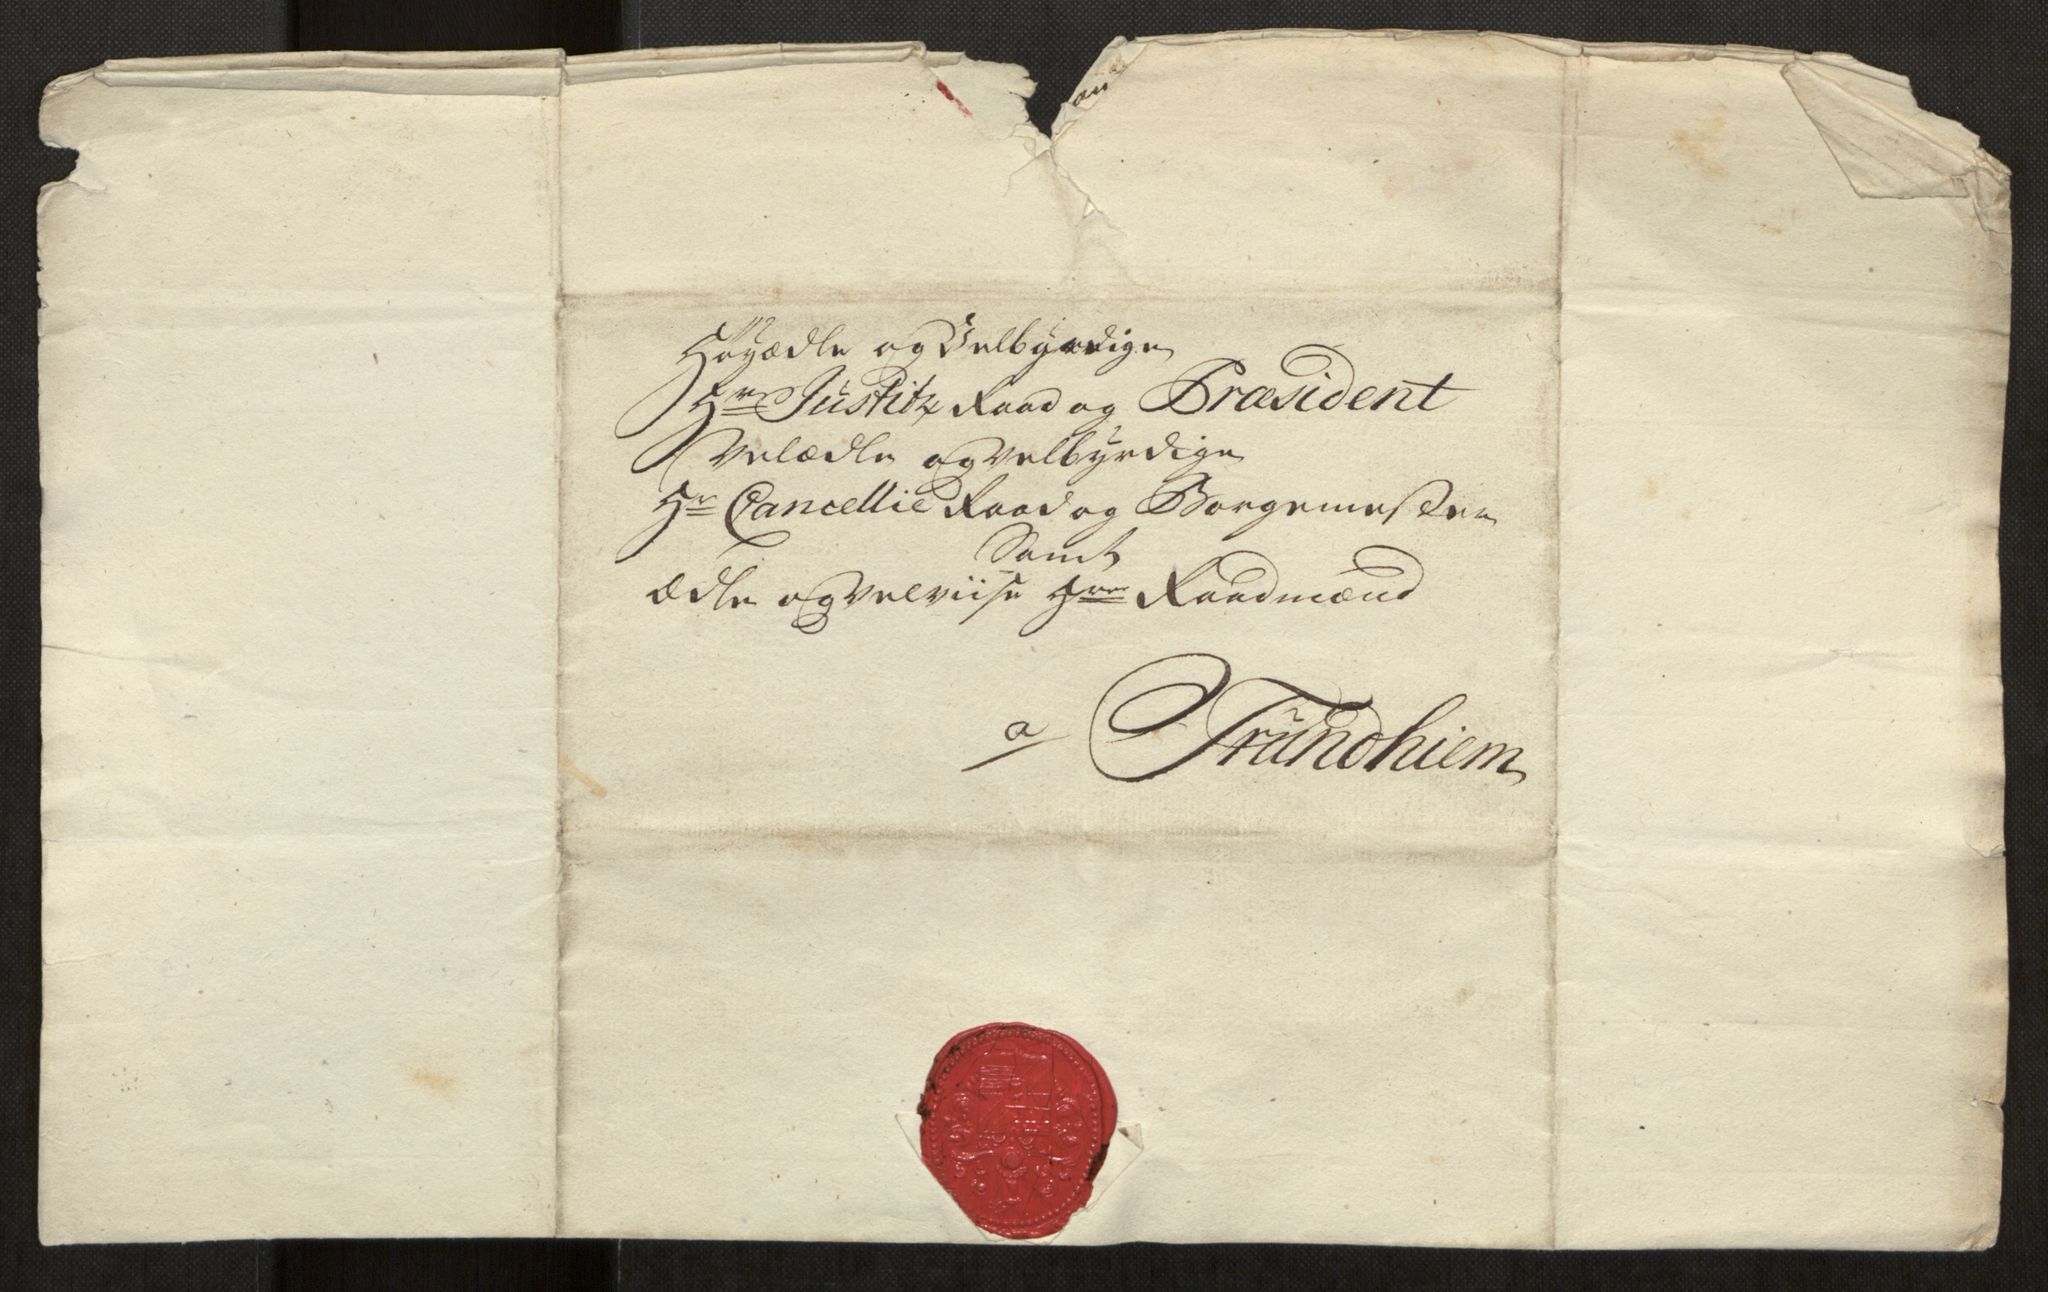 Høyædle og Velbyrdige
Hr Justitz Raad og Præsident
Velædle og Velbyrdige
Hr Cancellie Raad og Borgemester
Samt
Ædle og Velviise Hrr Raadmænd
a Trundhiem